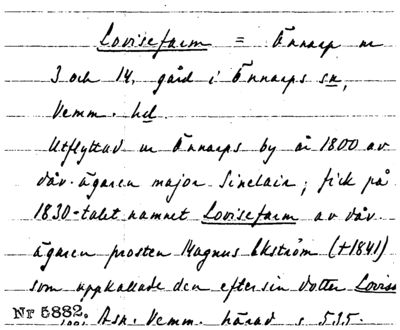 Lovisefarm = Önnarp nr
3 och 14, gård i Önnarps sn,
Vemm. hd.
Utflyttad ur Önnarps by år 1800 av
dåv. ägaren major Sinclair; fick på
1830-talet namnet Lovisefarm av dåv.
ägaren prosten Magnus Ekström (+1841)
som uppkallade den efter sin dotter Lovis
Nr 5882. Ask. Vemm. härad s 535.